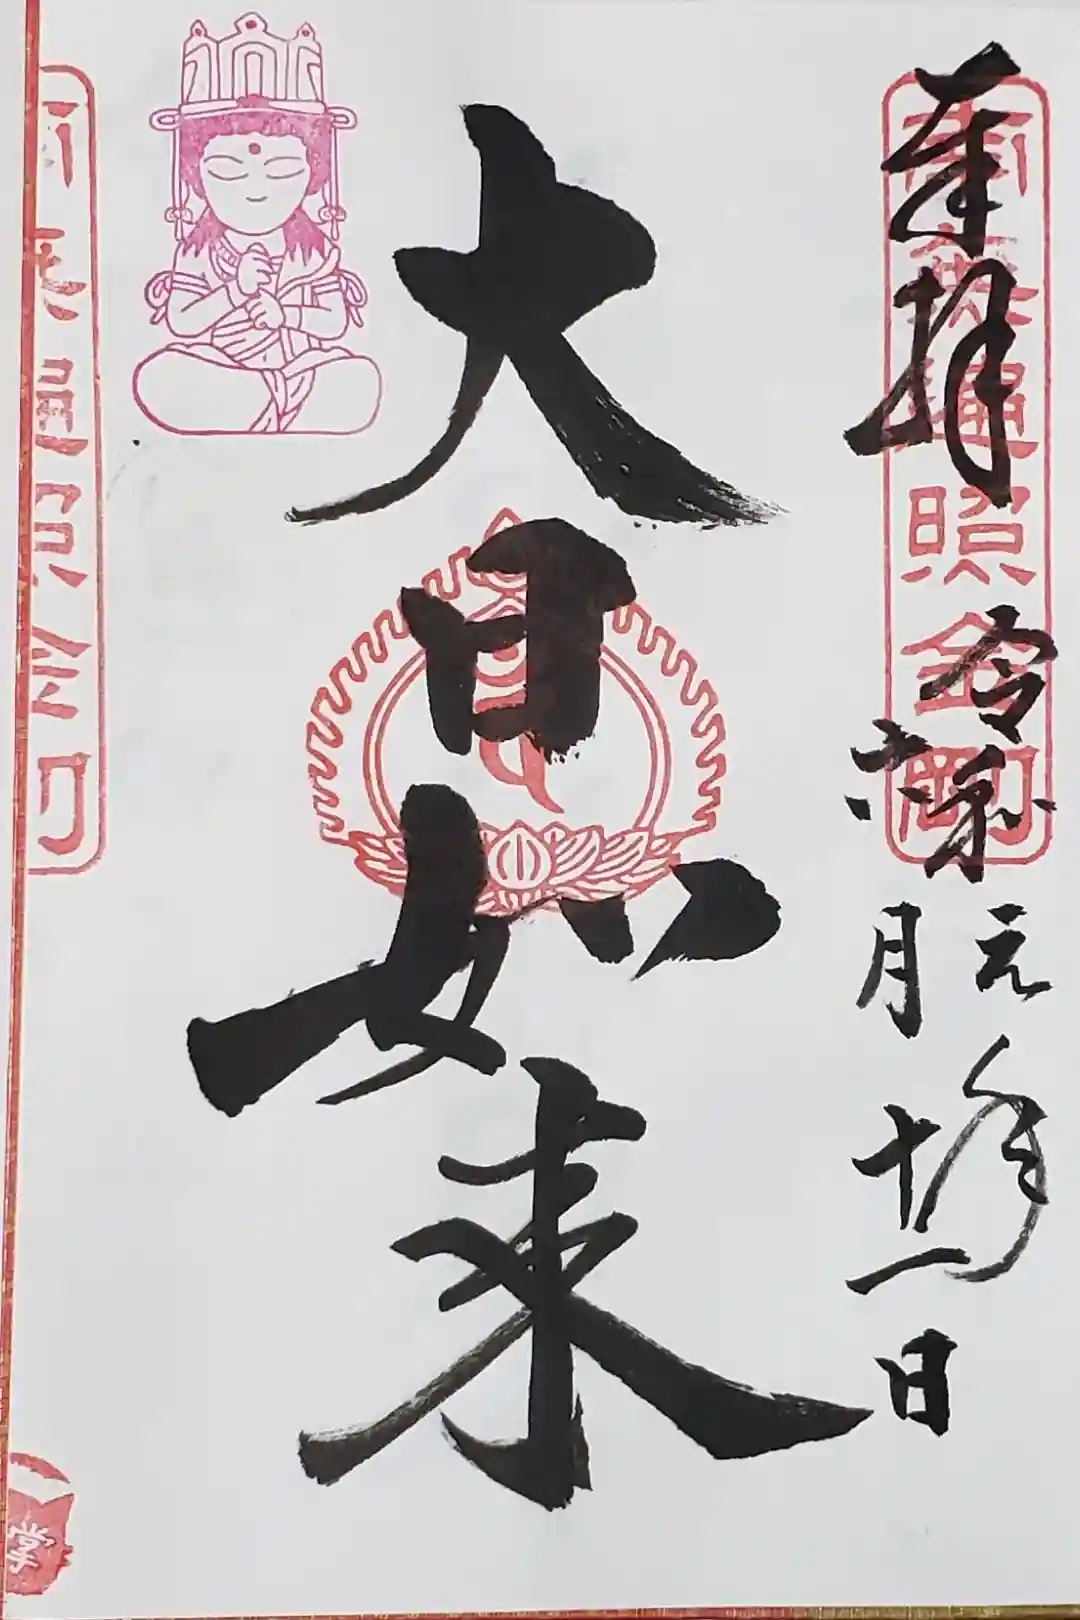 奉拝
南無遍照金剛
令和元年
六月十一日
大日如来
掌